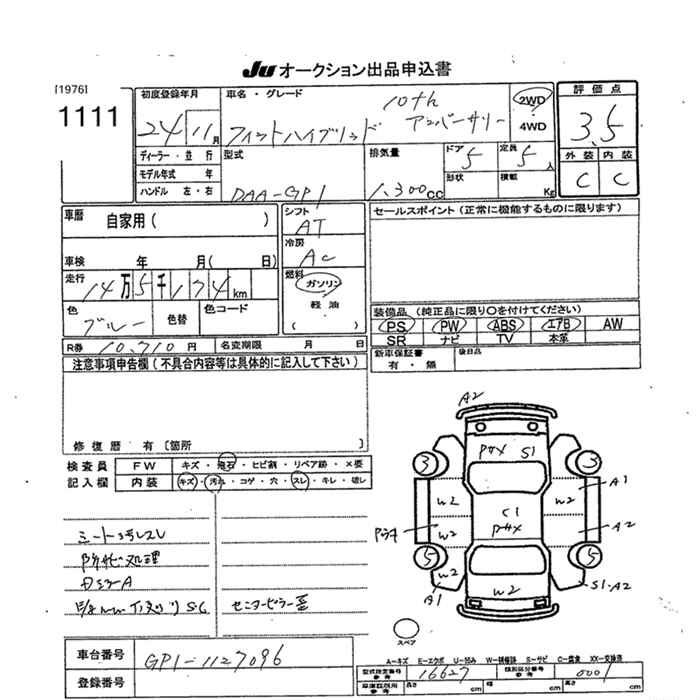 JU オークション出品申込書
[1976]
1111
初度登録年月
24 11月
車名・グレード
10th
フィットハイブリッド アニバーサリー
2WD
4WD
評価点
3.5
外装 内装
C C
ディーラー・並行
モデル年式 年
ハンドル 左・右
型式
DAA-GP1
排気量
1,300cc
ドア 5
形状
定員 5人
積載 Kg
車歴
自家用( )
車検 年 月( 日)
走行
14万5千174km
色
ブルー
色替
色コード
シフト
AT
冷房
AC
燃料
ガソリン
軽油
( )
セールスポイント(正常に機能するものに限ります)
装備品(純正品に限り○を付けてください)
PS PW ABS エアB AW
SR ナビ TV 本革
新車保証書
有・無
後日品
R券 10,710円 名変期限 月 日
注意事項申告欄(不具合内容等は具体的に記入して下さい)
修復歴 有[箇所 ]
検査員
記入欄
FW キズ・飛石・ヒビ割・リペア跡・×要
内装 キズ・汚れ・コゲ・穴・スレ・キレ・破レ
シートコゲスレ
防サビ処理
セニターピラー歪
A2
PサメS1
3 3
W2 W2 A1
C1
Pサメ
W2 A2
5 5
W2 W2
A1 S1・A2
スペア
車台番号 GP1-1127096
登録番号
A-キズ E-エクボ U-凹み W-補修跡 S-サビ C-腐食 XX-交換済
型式指定番号
参考
16627
類別区分番号
参考
0001
車庫証明用
参考
長さ cm 幅 cm 高さ cm